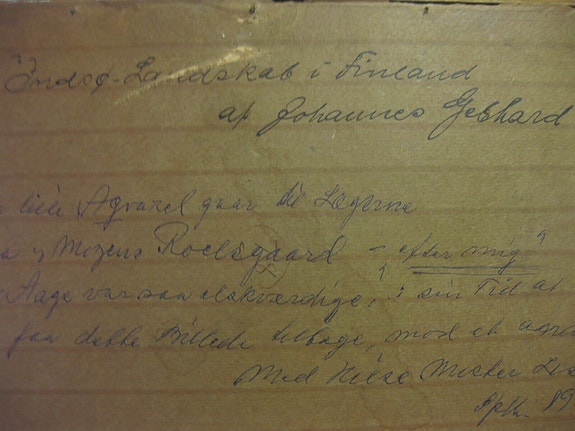 "Indsø-Landskab i Finland
af Johannes Gebhard
lille Aqvarel gaar til Lægerne
og Mogens Roelsgaard - efter mig"
Aage var saa elskværdige, i sin Tid at
faa dette Billede tilbage, mod et
Med Hilsen Mester